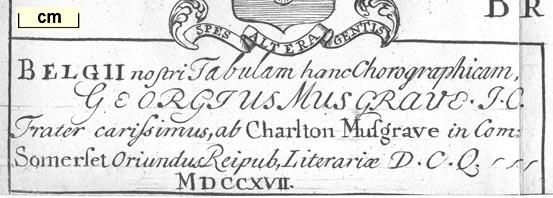 cm
BR
SPES ALTERA GENTIS
BELGII nostri Tabulam hanc Chorographicam,
GEORGIUS MUSGRAVE. I.C.
Frater carissimus, ab Charlton Musgrave in Com:
Somerset Oriundus Reipub, Literariæ D. C. Q.
MDCCXVII.